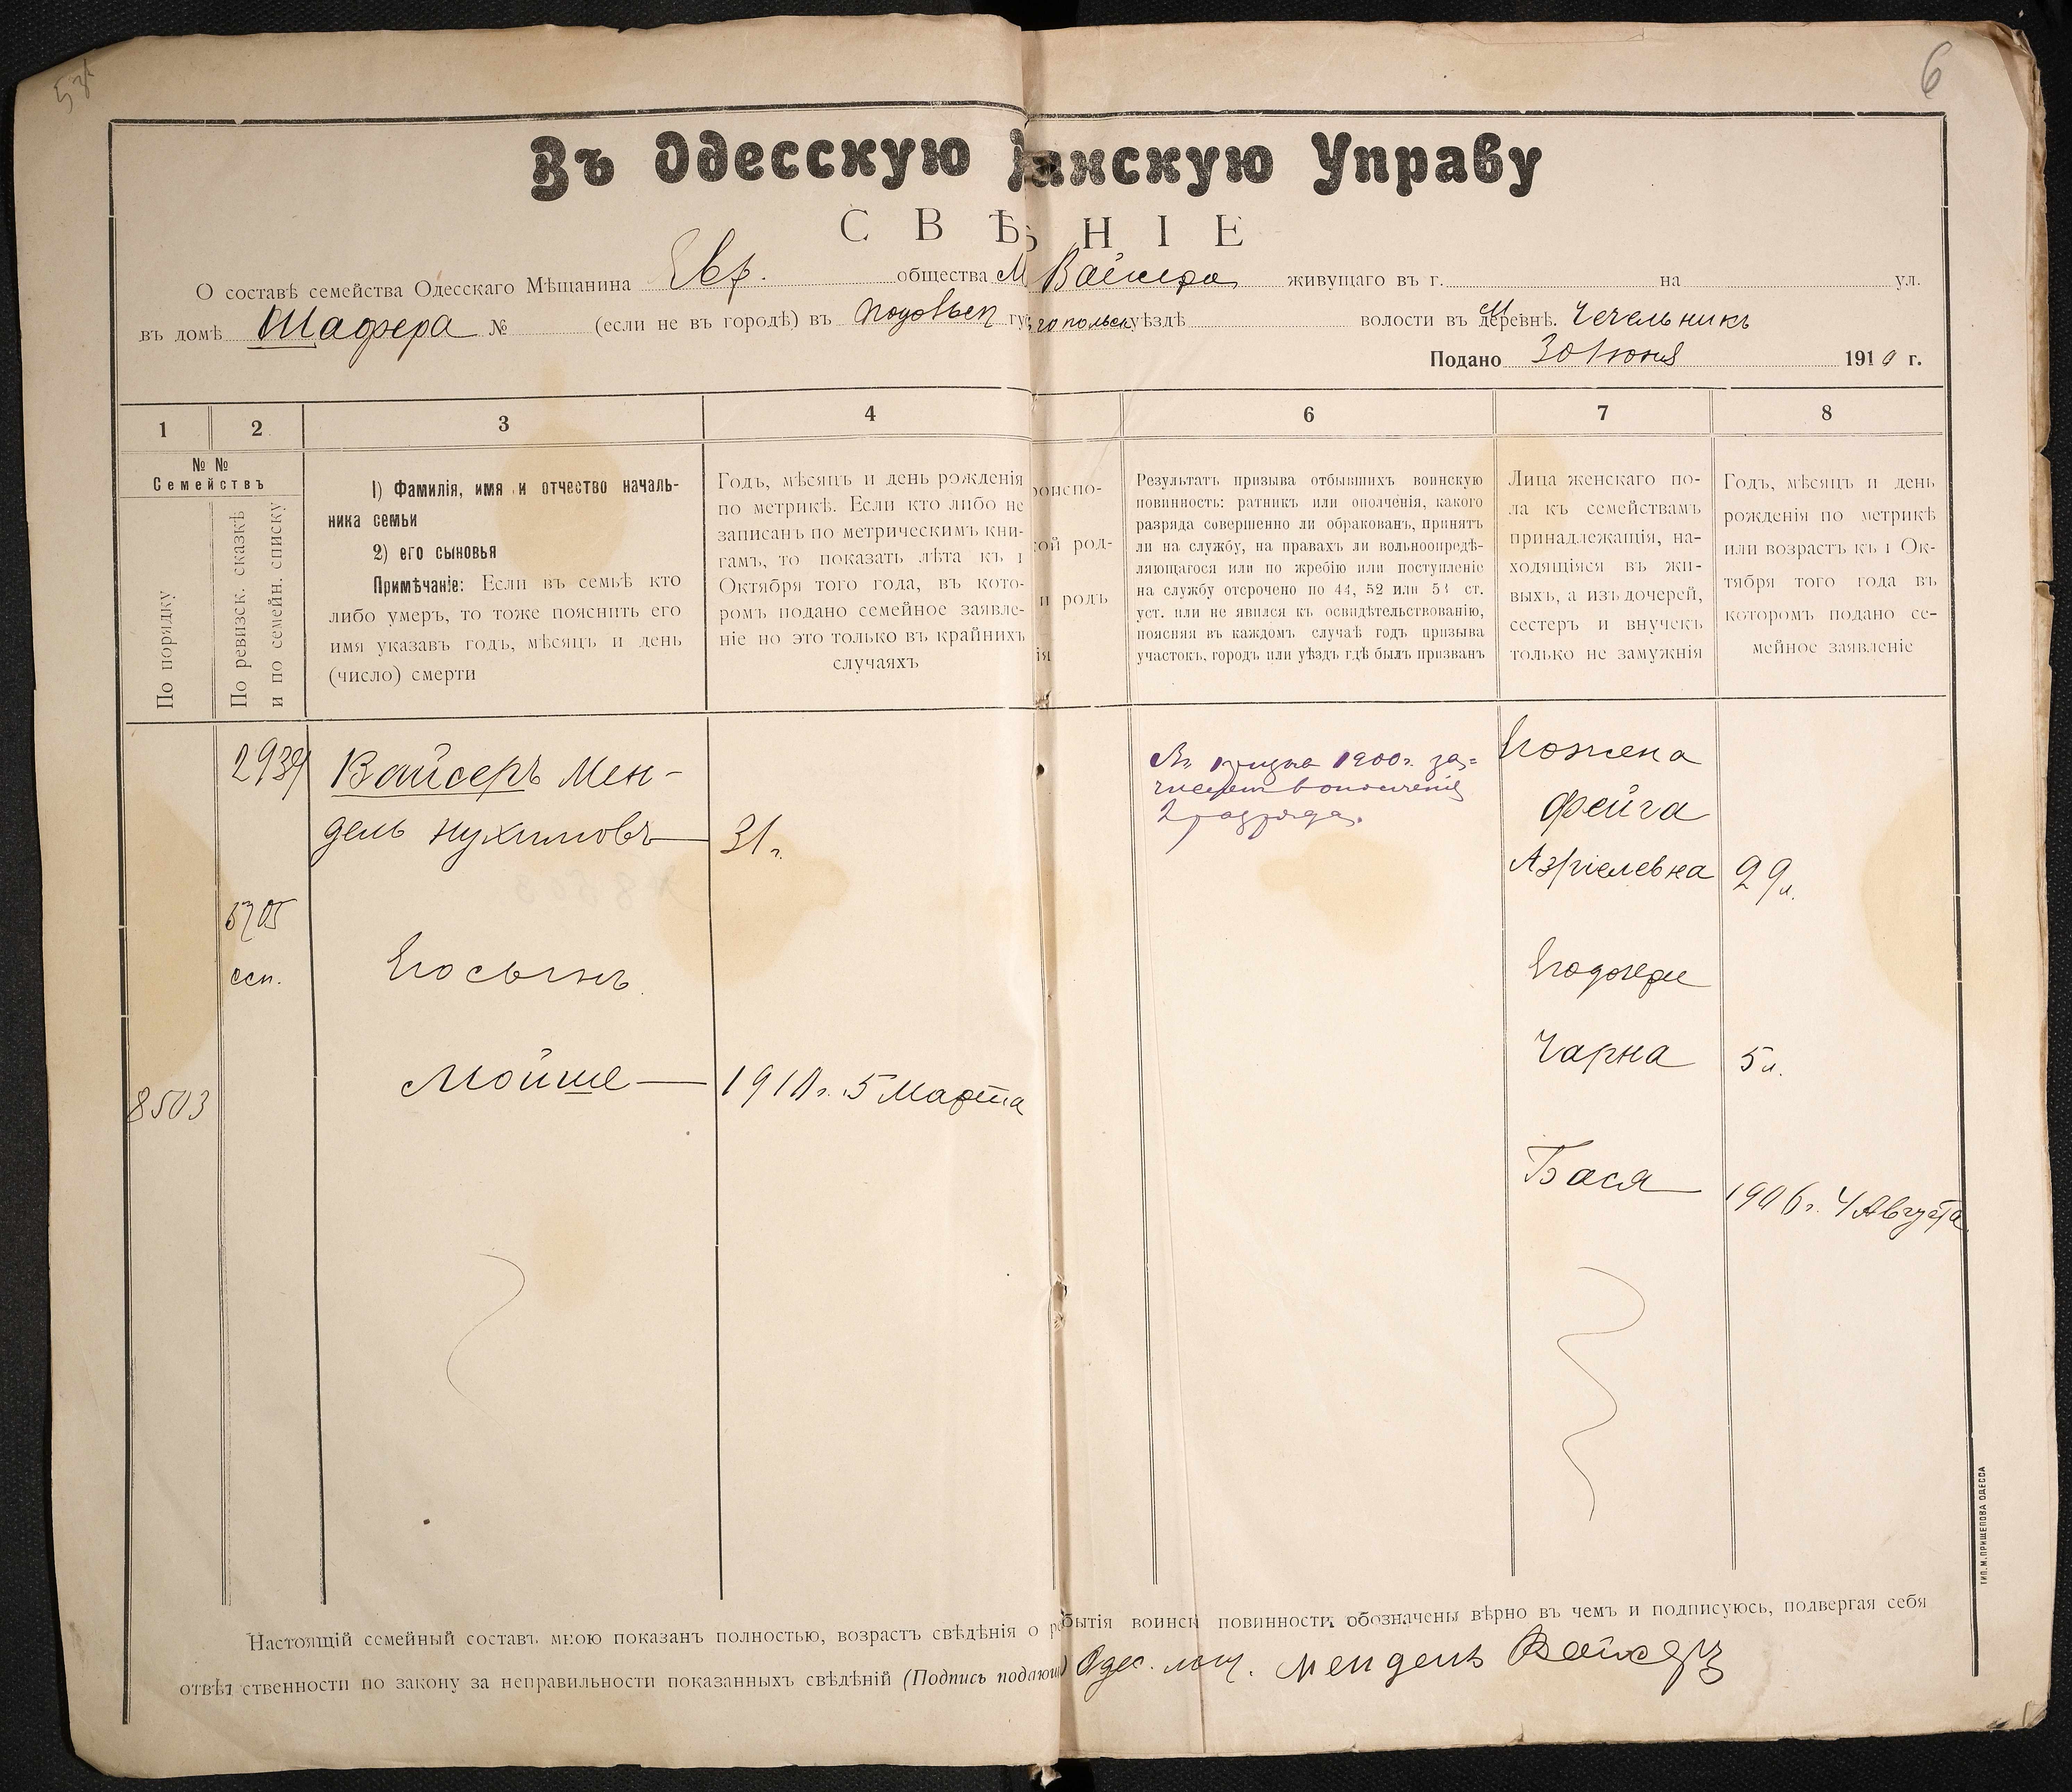 58
6
Въ Одесскую нскую Управу
СВѢ НІЕ
О составѣ семейства Одесскаго Мѣщанина Евр. общества М Вайсера живущаго въ г. на ул.
въ домѣ Шафера № (если не въ городѣ) въ Подольск гу гопольск уѣздѣ волости въ деревнѣ. М Чечельникъ
Подано 30 Іюня 1910 г.
1 2 3 4 6 7 8
№ №
Семействъ
По порядку
По ревизск. сказкѣ
и по семейн. списку
1) Фамилія, имя и отчество началь-
ника семьи
2) его сыновья
Примѣчаніе: Если въ семьѣ кто
либо умеръ, то тоже пояснить его
имя указавъ годъ, мѣсяцъ и день
(число) смерти
Годъ, мѣсяцъ и день рожденія
по метрикѣ. Если кто либо не
записанъ по метрическимъ кни-
гамъ, то показать лѣта къ 1
Октября того года, въ кото-
ромъ подано семейное заявле-
ніе но это только въ крайнихъ
случаяхъ
роиспо-
ой род-
и родъ
ія
Результатъ призыва отбывшихъ воинскую
повинность: ратникъ или ополченія, какого
разряда совершенно ли обракованъ, принятъ
ли на службу, на правахъ ли вольноопредѣ-
ляющагося или по жребію или поступленіе
на службу отсрочено по 44, 52 или 53 ст.
уст. или не явился къ освидѣтельствованію,
поясняя въ каждомъ случаѣ годъ призыва
участокъ, городъ или уѣздъ гдѣ былъ призванъ
Лица женскаго по-
ла къ семействамъ
принадлежащія, на-
ходящіяся въ жи-
выхъ, а изъ дочерей,
сестеръ и внучекъ
только не замужнія
Годъ, мѣсяцъ и день
рожденія по метрикѣ
или возрастъ къ 1 Ок-
тября того года въ
которомъ подано се-
мейное заявленіе
2939 Вайсеръ Мен-
дель Нухимовъ 31 г.
Въ призывъ 1900 г. за=
численъ в ополченіе
2 разряда.
Его жена
Фейга
Азріелевна 29 л.
5705
осп.
Его сынъ
Его дочери
Мойше 1910 г. 5 Марта
Чарна 5 л.
8503
Бася 1906 г. 4 Августа
Настоящій семейный составъ мною показанъ полностью, возрастъ свѣдѣнія о бытія воинск повинности обозначены вѣрно въ чемъ и подписуюсь, подвергая себя
отвѣтственности по закону за неправильности показанныхъ свѣдѣній (Подпись подающ) Одес. мѣщ. Мендель Вайсеръ
ТИП. М. ПРИЩЕПОВА ОДЕССА